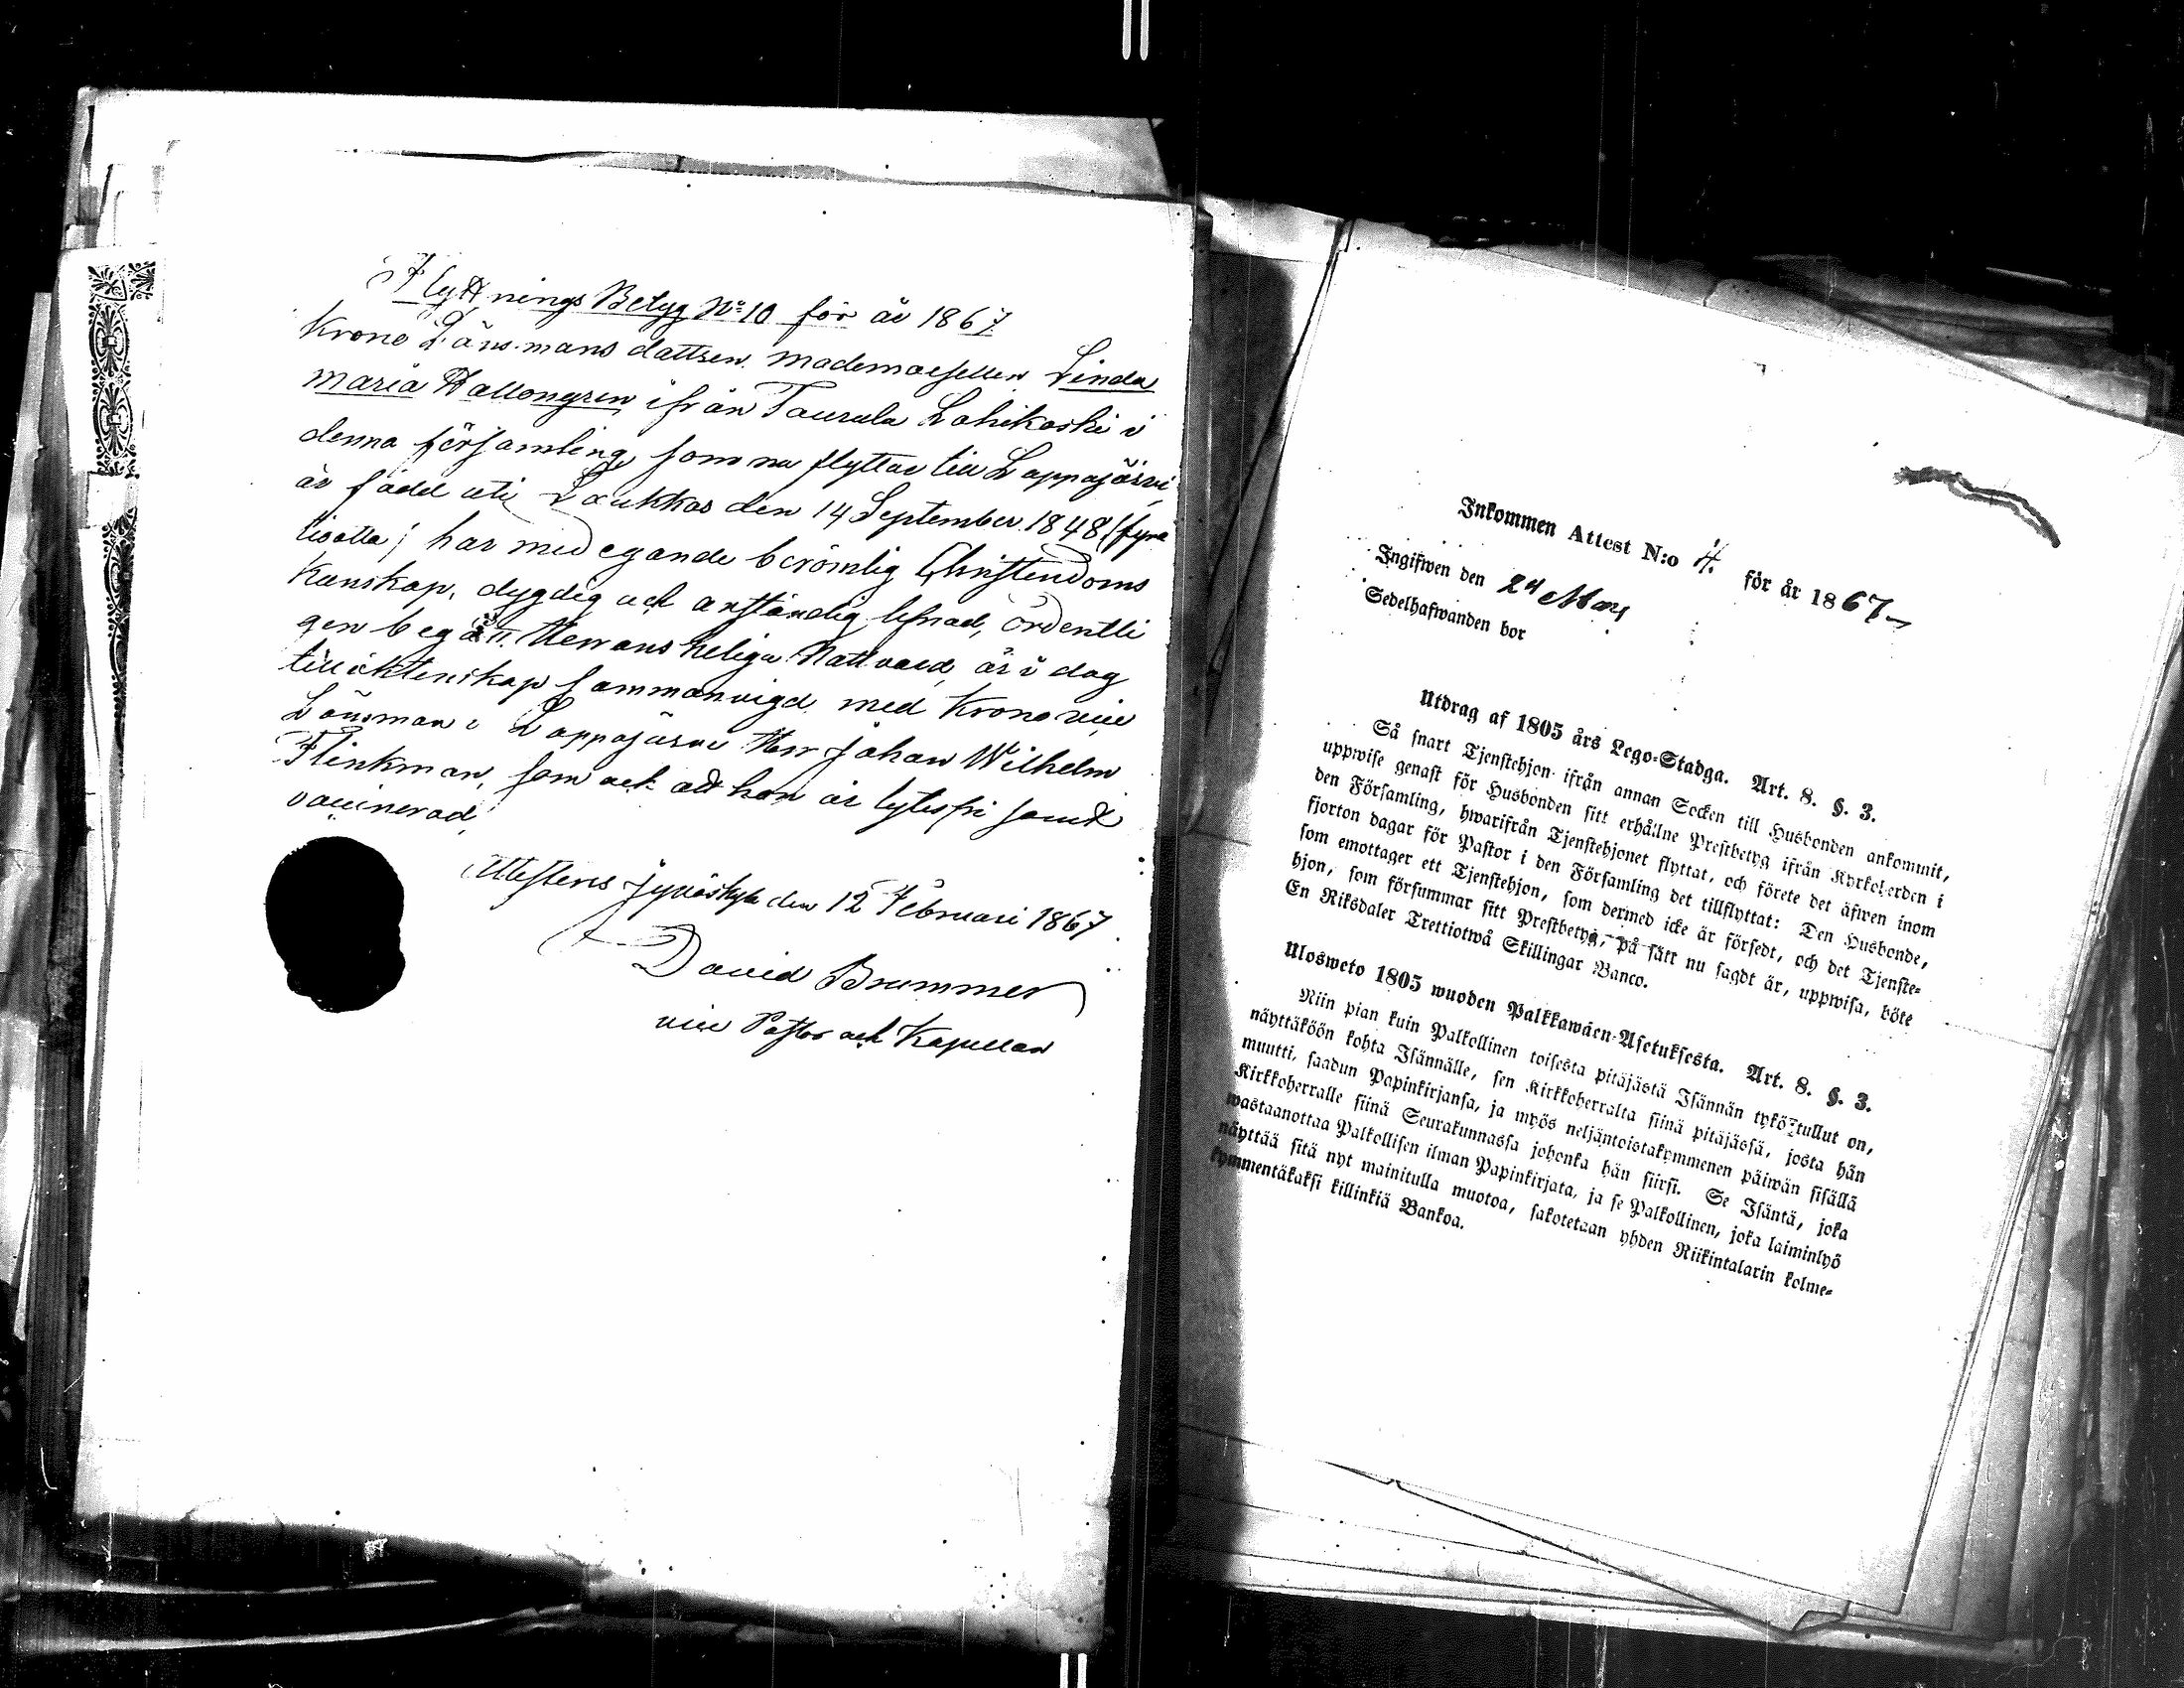 Flyttnings Betyg No 10 för år 1867
Krono Länsmans dottren mademoesellen Linda
Maria Hallongren ifrån Taurula Lohikoski i
denna församling, som nu flyttar till Lappajärvi,
är född uti Laukkas den 14 September 1848 (fyra
tioåtta) har med egande berömlig Christendoms
Kunskap, dygdig och anständig lefnad, ordentli
gen begått Herrans heliga Nattvard, är i dag
till äktenskap sammanvigd med Krono vice
Länsman i Lappajärvi Herr Johan Wilhelm
Flinkman, som ock att hon är lytesfri samt
vaccinerad,
Attesteras Jyväskylä den 12 Februari 1867
David Brummer
vice Pastor och Kapellan
Inkommen Attest N:o 4. för år 1867
Ingifwen den 24 Mars
Sedelhafwanden bor
Utdrag af 1805 års Lego-Stadga. Art. 8. §. 3.
Så snart Tjenstehjon ifrån annan Socken till Husbonden ankommit,
uppwise genast för Husbonden sitt erhållne Prestbetyg ifrån Kyrkoherden i
den Församling, hwarifrån Tjenstehjonet flyttat, och förete det äfwen inom
fjorton dagar för Pastor i den Församling det tillflyttat: Den Husbonde,
som emottager ett Tjenstehjon, som dermed icke är försedt, och det Tjenste-
hjon, som försummar sitt Prestbetyg, på sätt nu sagdt är, uppwisa, böte
En Riksdaler Trettiotwå Skillingar Banco.
Ulosweto 1805 wuoden Palkkawäen-Asetuksesta. Art. 8. §. 3.
Niin pian kuin Palkollinen toisesta pitäjästä Isännän tykö tullut on,
näyttäköön kohta Isännälle, sen Kirkkoherralta siinä pitäjässä, josta hän
muutti, saadun Papinkirjansa, ja myös neljäntoistakymmenen päiwän sisällä
Kirkkoherralle siinä Seurakunnassa johonka hän siirsi. Se Isäntä, joka
wastaanottaa Palkollisen ilman Papinkirjata, ja se Palkollinen, joka laiminlyö
näyttää sitä nyt mainitulla muotoa, sakotetaan yhden Riikintalarin kolme-
kymmentäkaksi killinkiä Bankoa.